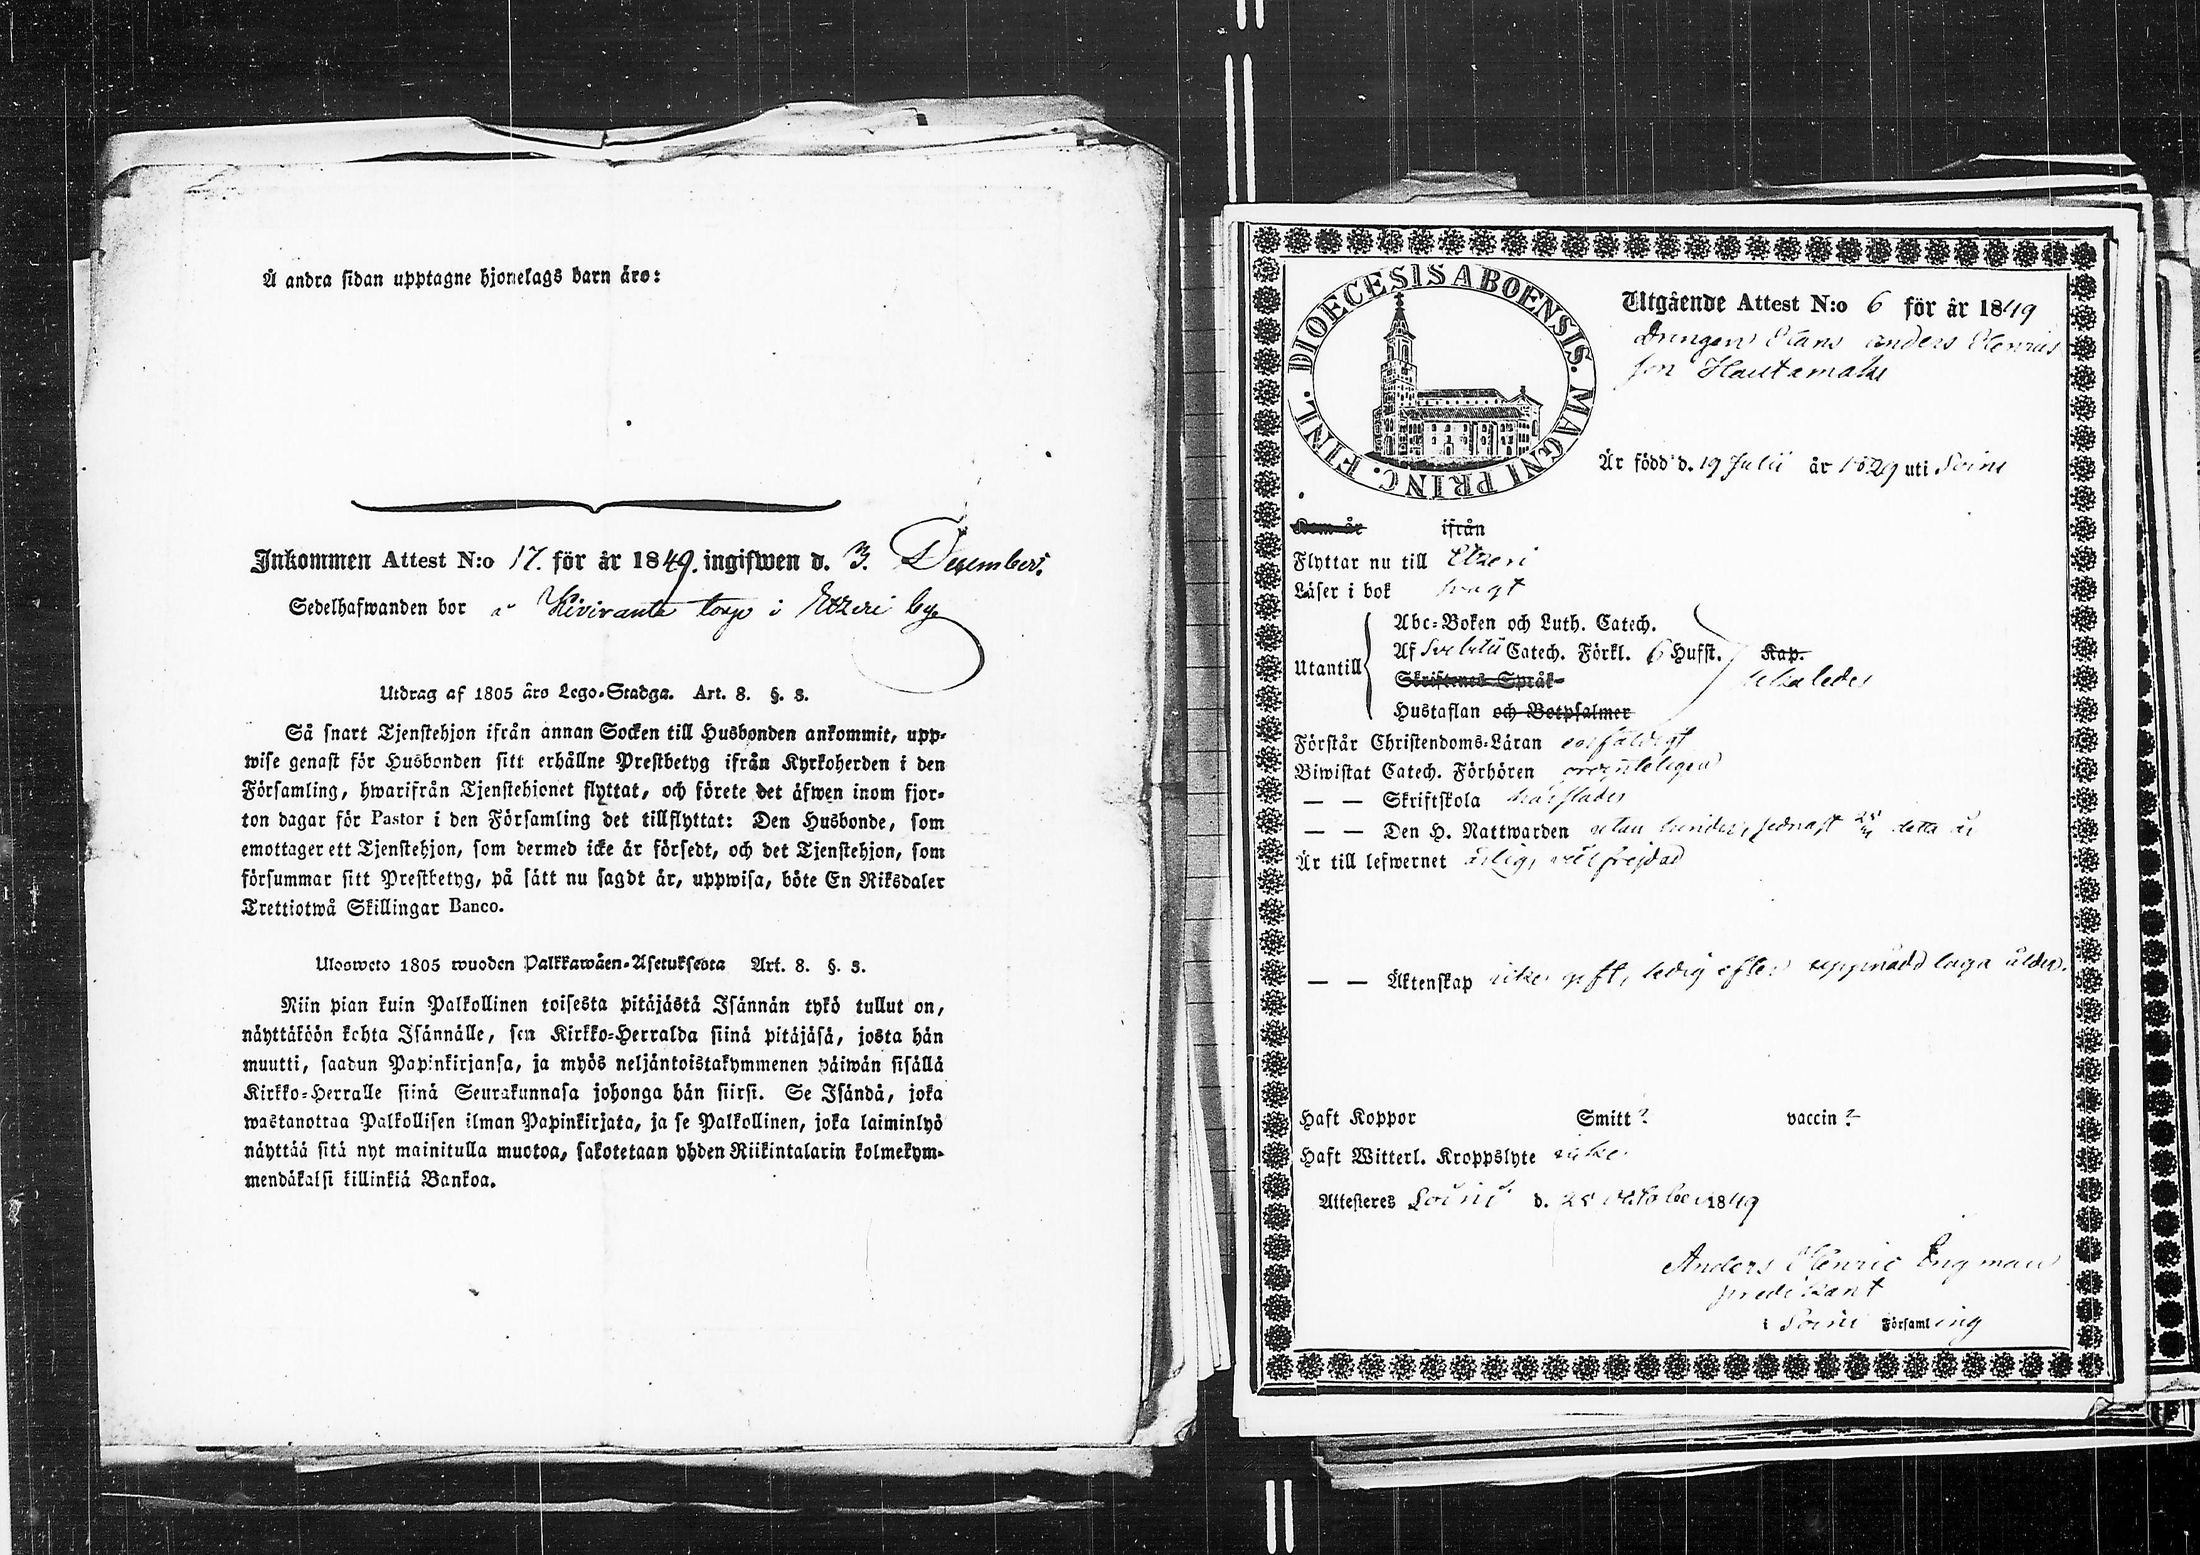 Å andra sidan upptagne hjonelags barn äro:
Inkommen Attest N:o 17. för år 1849. ingifwen d. 3. December.
Sedelhafwanden bor å Kiviranta torp i Etzeri by.
Utdrag af 1805 års Lego-Stadga. Art. 8. §. 8.
Så snart Tjenstehjon ifrån annan Socken till Husbonden ankommit, upp-
wise genast för Husbonden sitt erhållne Prestbetyg ifrån Kyrkoherden i den
Församling, hwarifrån Tjenstehjonet flyttat, och förete det äfwen inom fjor-
ton dagar för Pastor i den Församling det tillflyttat: Den Husbonde, som
emottager ett Tjenstehjon, som dermed icke är försedt, och det Tjenstehjon, som
försummar sitt Prestbetyg, på sätt nu sagdt är, uppwisa, böte En Riksdaler
Trettiotwå Skillingar Banco.
Ulosweto 1805 wuoden Palkkawäen-Asetuksesta Art. 8. §. 8.
Niin pian kuin Palkollinen toisesta pitäjästä Isännän tykö tullut on,
näyttäköön kohta Isännälle, sen Kirkko-Herralda siinä pitäjäsä, josta hän
muutti, saadun Papinkirjansa, ja myös neljäntoistakymmenen päiwän sisällä
Kirkko-Herralle siinä Seurakunnasa johonga hän siirsi. Se Isändä, joka
wastanottaa Palkollisen ilman Papinkirjata, ja se Palkollinen, joka laiminlyö
näyttää sitä nyt mainitulla muotoa, sakotetaan yhden Riikintalarin kolmekym-
mendäkaksi killinkiä Bankoa.
DIOECESIS ABOENSIS. MAGNI PRINC. FINL.
Utgående Attest N:o 6 för år 1849
Drängen Hans Anders Henriks
son Hautamäki
Är född d. 19 Julii år 1829 uti Soini
Som är ifrån
Flyttar nu till Etzeri
Läser i bok svagt
Abc-Boken och Luth. Catech.
Utantill Af Svebilii Catech. Förkl. 6 Hufst. Kap.
Skriftenes Språk
likaledes
Hustaflan och Botpsalmer
Förstår Christendoms-Läran enfaldigt
Biwistat Catech. Förhören ordenteligen
— — Skriftskola
— — Den H. Nattwarden detta år
Är till lefwernet ärlig, välfrejdad
— — Äktenskap icke gift, ledig efter uppnådd laga ålder.
Haft Koppor Smitt ? vaccin ?
Haft Witterl. Kroppslyte icke
Attesteres Soini d. 25 Oktober 1849
Anders Henric Engman
predikant
i Soini Församling